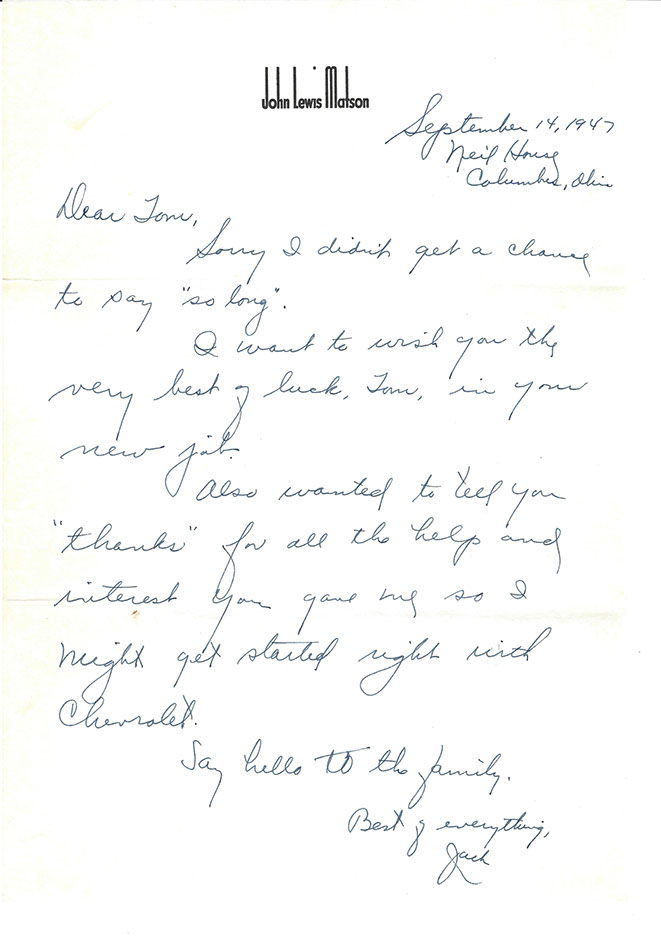 John Lewis Matson
September 14, 1947
Neil House
Columbus, Ohio
Dear Tom,
Sorry I didn't get a chance
to say "so long".
I want to wish you the
very best of luck, Tom, in your
new job.
Also wanted to tell you
"thanks" for all the help and
interest you gave me so I
might get started right with
Chevrolet.
Say hello to the family.
Best of everything,
Jack